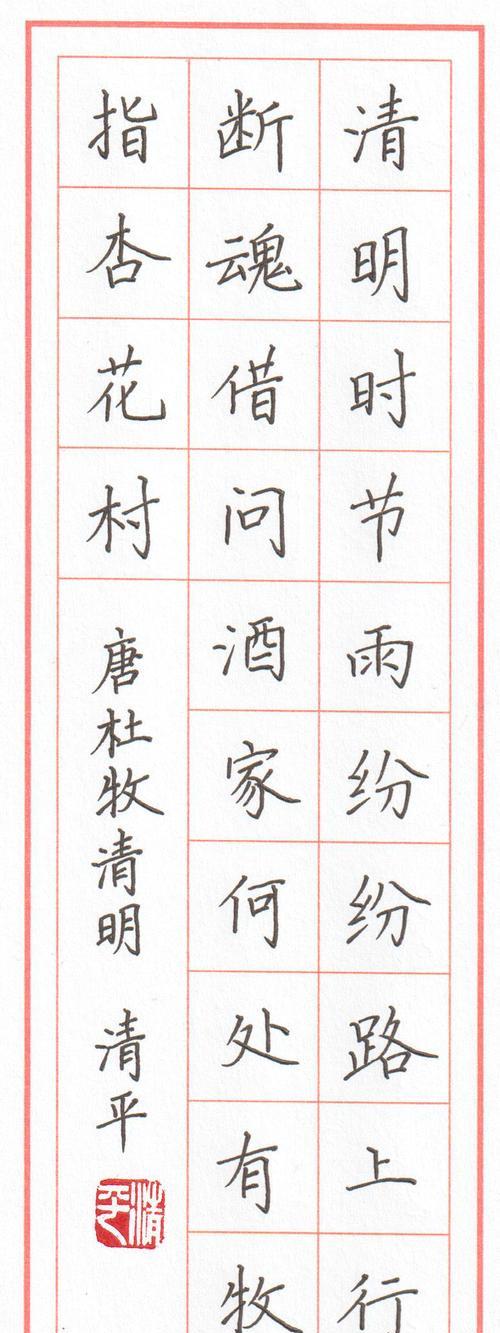 清明时节雨纷纷路上行
断魂借问酒家何处有牧
指杏花村
唐杜牧清明 清平
清平